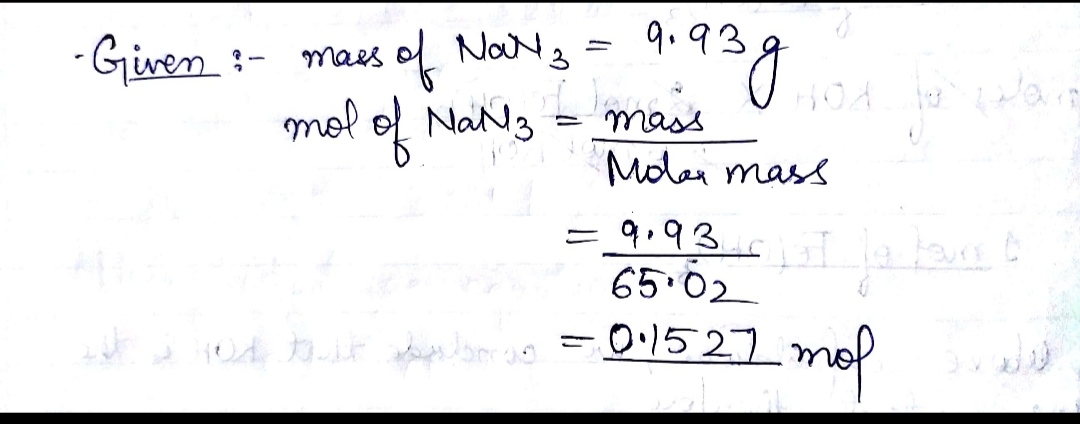 - Given :- mass of NaN3 = 9.93 g
mol of NaN3 = mass
Molar mass
= 9.93
65.02
= 0.1527 mol